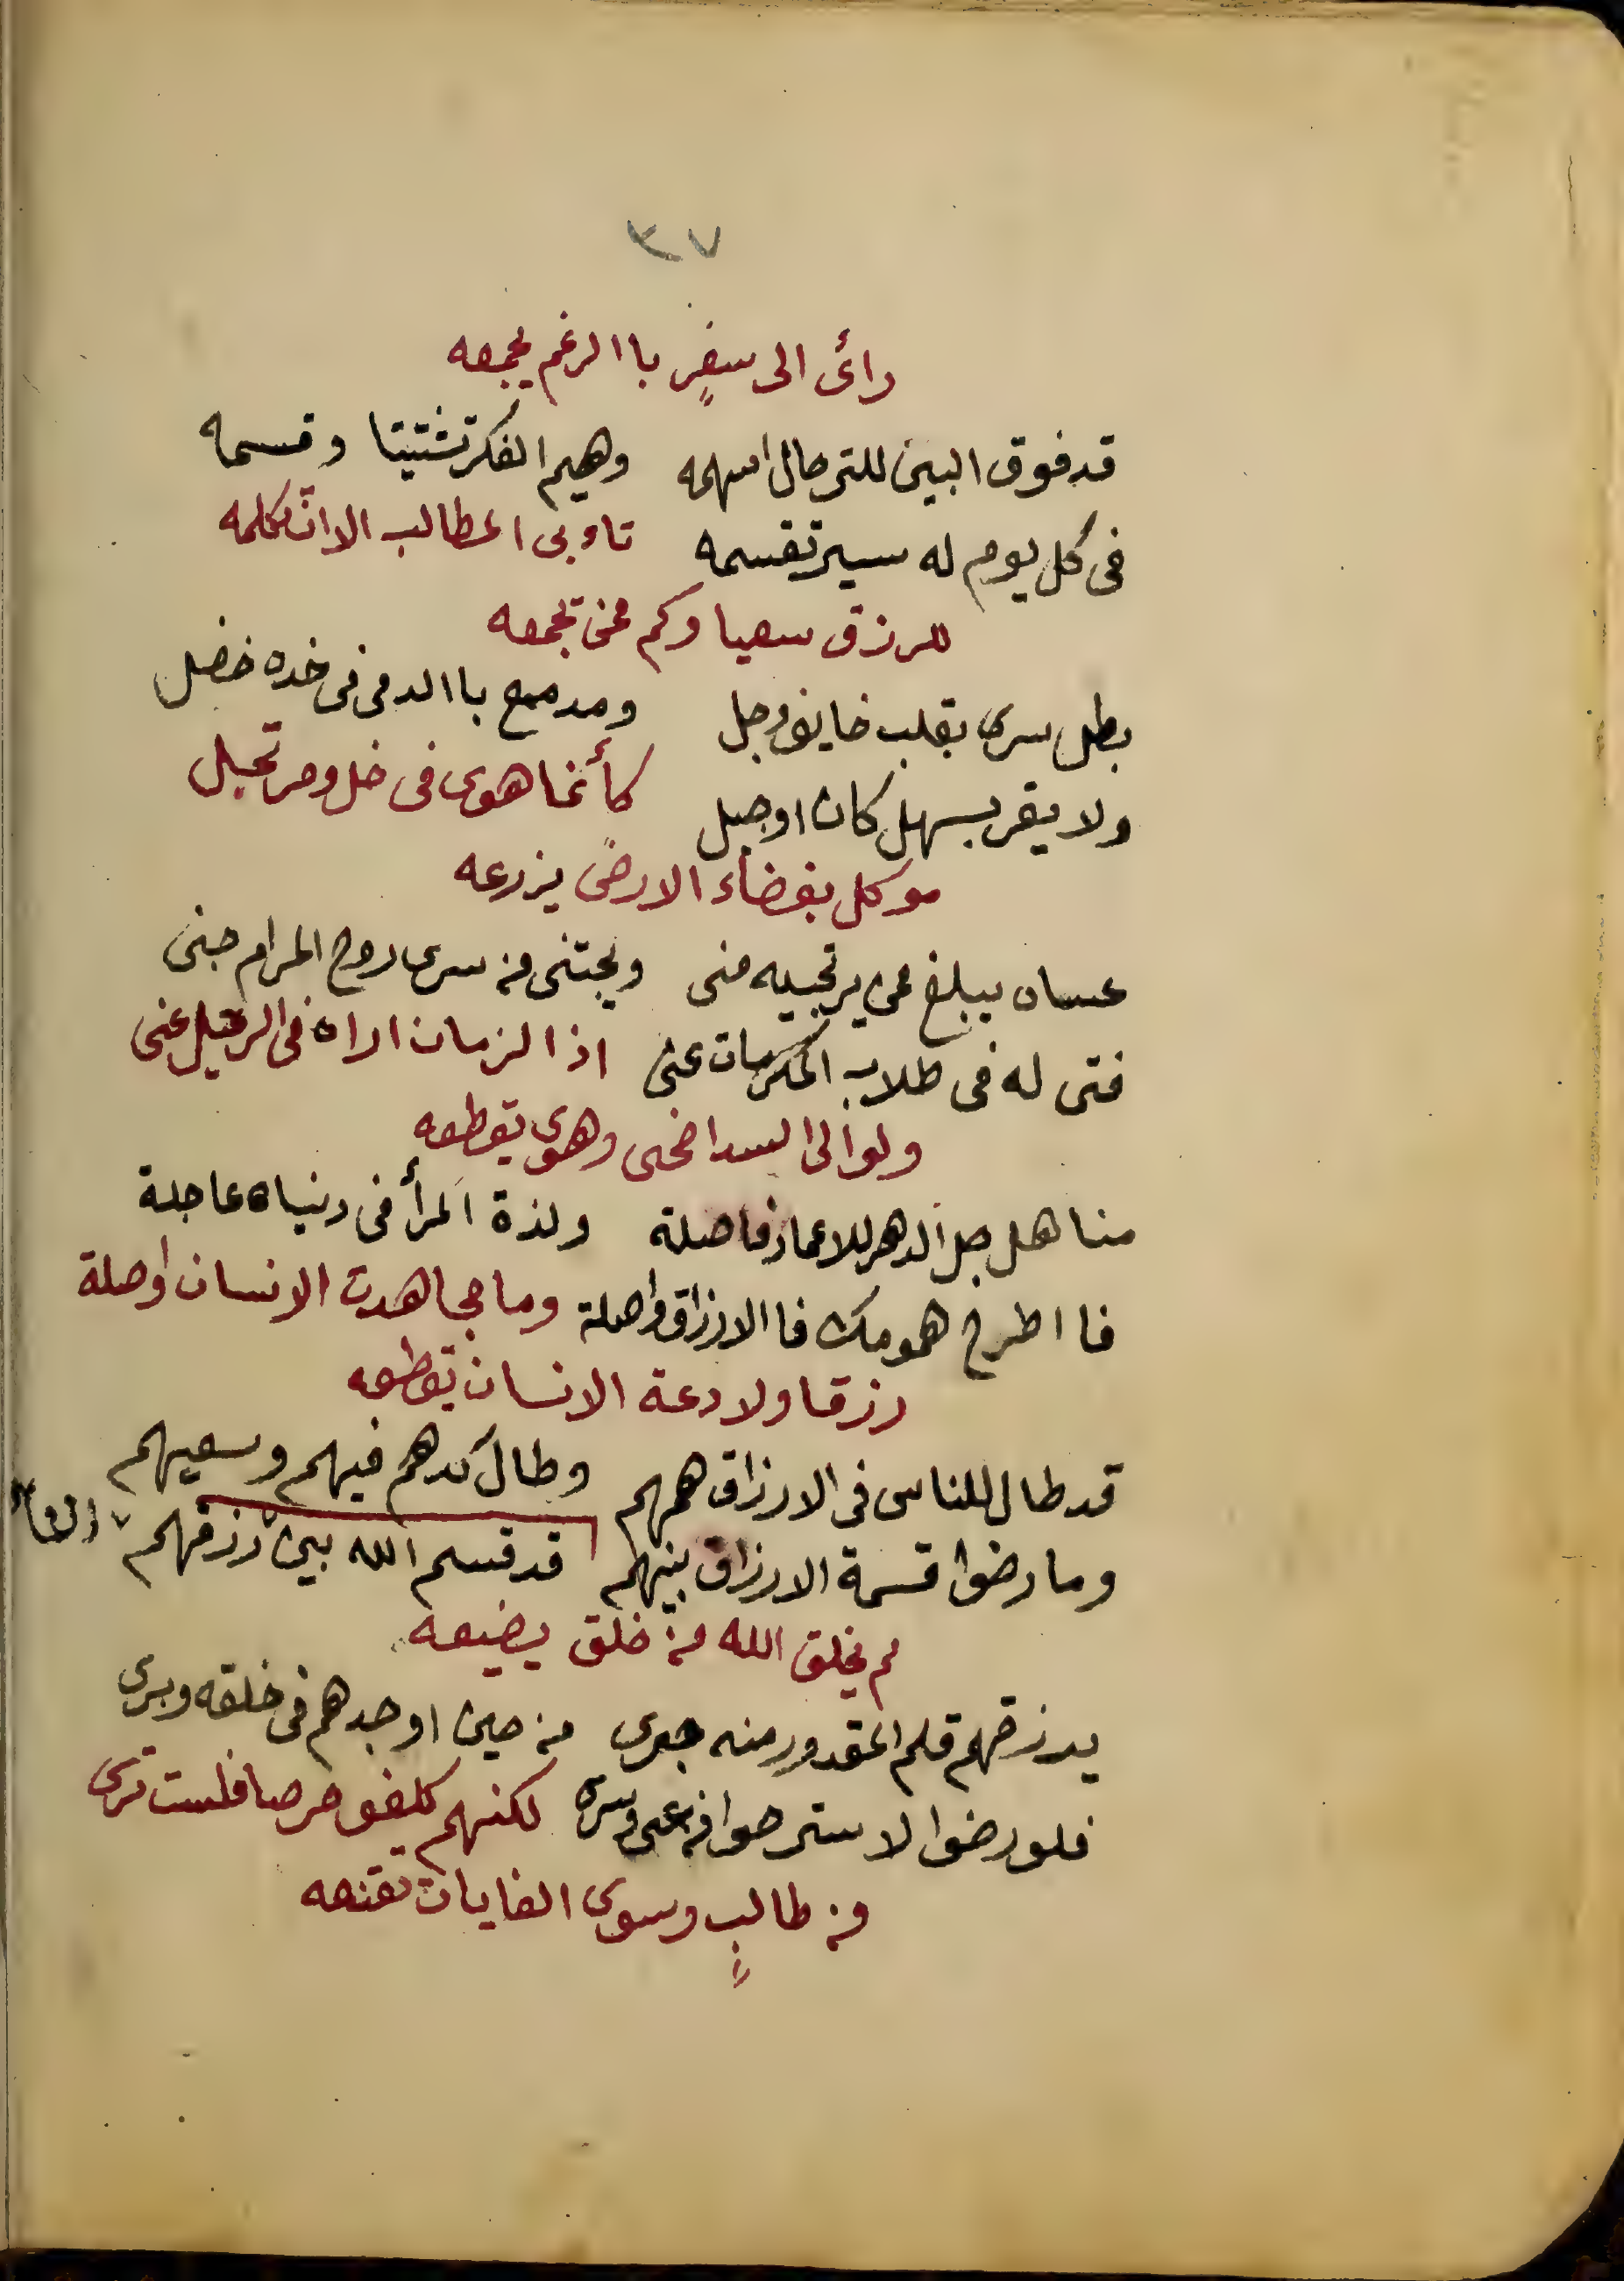 ٣٧
رائ الى سفرٍ باالرغم يجمعه
قد فوق البين للترحال اسهمه وهيم الفكر تشتيتا وقسمه
فى كل يوم له سير تقسمه تاءبى المطالب الا ان تكلمه
للرزق سعيا وكم ممن تجمعه
بطل سرى بقلب خايف وجل ومدمع باالدمى فى خده خضل
ولا يقر بسهل كان اوجبل كأنما هوى فى خل ومرتحل
موكل بفضاء الارض يزرعه
عساه يبلغ من يرتجيه منى ويجتنى من سرى روح المرام جنى
فتى له فى طلاب المكرمات عنى اذا الزمان اراه فى الرحيل غنى
ولو الى السد اضحى وهوى يقطعه
مناهل جل الدهر للاعمار فاصلة ولذة المرأ فى دنياه عاجلة
فا اطرح همومك فا الارزاق واصلة وما مجاهدت الانسان اوصلة
رزقا ولا دعة الانسان تقطعه
قد طال للناس فى الارزاق همهم وطال كدهم فيهم وسعيهم
وما رضوا قسمة الارزاق بينهم قد قسم الله بين رزقهم
لم يخلق الله من خلق يضيعه
يدرزقهم قلم المقدور منه جرى من حين اوجدهم فى خلقه وبرى
فلو رضوا لاسترحوا من عنى وسرى لكنهم كلفو حرصا فلست ترى
من طالبٍ وسوى الغايات تقنعه